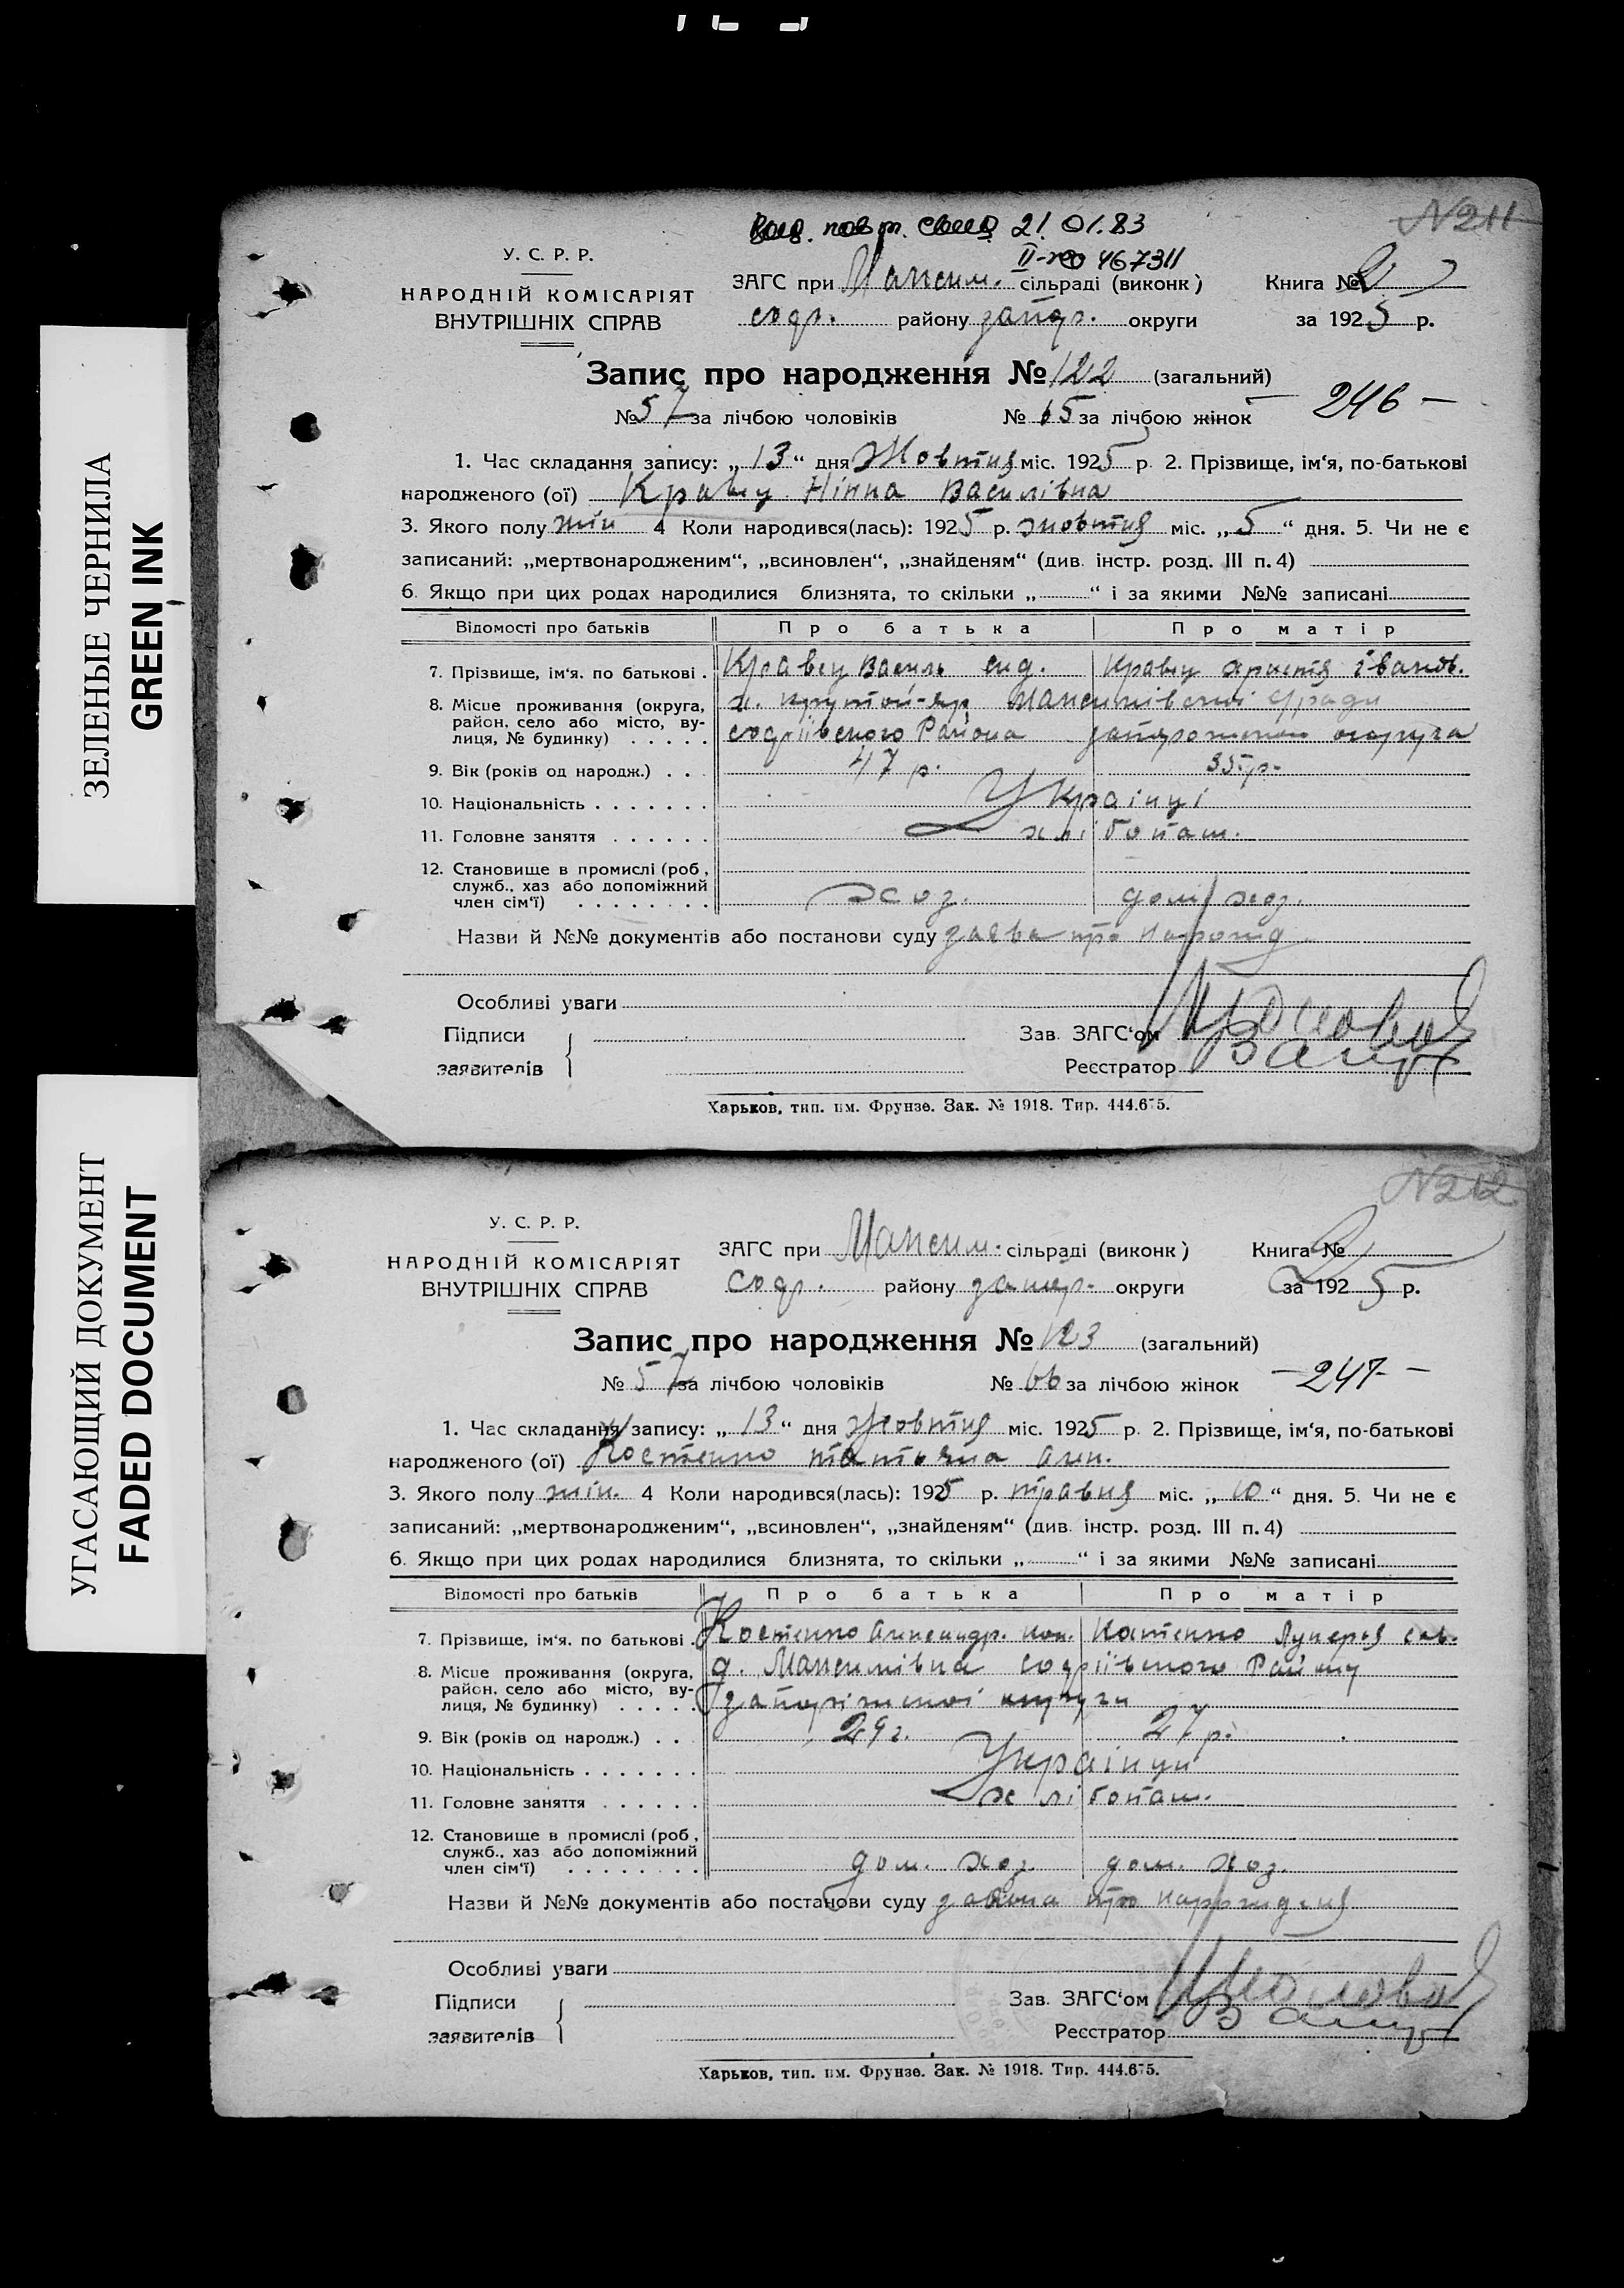 ЗЕЛЕНЫЕ ЧЕРНИЛА
GREEN INK
УГАСАЮЩИЙ ДОКУМЕНТ
FADED DOCUMENT
N211
Выд. повт. свид. 21.01.83
II-жо 467311
У. С. Р. Р.
НАРОДНІЙ КОМІСАРІЯТ
ВНУТРІШНІХ СПРАВ
ЗАГС при Максим. сільраді (виконк) Книга № 2
софр. району запор. округи за 1925 р.
Запис про народження № 122 (загальний)
№ 57 за лічбою чоловіків № 65 за лічбою жінок 246 –
1. Час складання запису: „13“ дня Жовтня міс. 1925 р. 2. Прізвище, ім‘я, по-батькові
народженого (ої) Кравец Нінна Василівна
3. Якого полу жін 4 Коли народився(лась): 1925 р. жовтня міс. „5“ дня. 5. Чи не є
записаний: „мертвонародженим“, „всиновлен“, „знайденям“ (див. інстр. розд. III п. 4)
6. Якщо при цих родах народилися близнята, то скільки „ “ і за якими №№ записані
Відомості про батьків Про батька Про матір
7. Прізвище, ім‘я. по батькові . Кравец Василь сид. Кравец Христя іванов.
8. Місце проживання (округа, х. крутой-яр Максимівской
район, село або місто, ву- софіївського Района округа
лиця, № будинку) . . . . .
9. Вік (років од народж.) . . . 47 р. 35 р.
10. Національність . . . . . . . Українці
11. Головне заняття . . . . . . хлібопаш.
12. Становище в промислі (роб,
служб., хаз або допоміжний
член сім‘ї) . . . . . . . . хоз. дом. хоз.
Назви й №№ документів або постанови суду заява про народ
Особливі уваги
Підписи Зав. ЗАГС‘ом
заявителів Реєстратор
Харьков, тип. им. Фрунзе. Зак. № 1918. Тир. 444.675.
N212
У. С. Р. Р.
НАРОДНІЙ КОМІСАРІЯТ
ВНУТРІШНІХ СПРАВ
ЗАГС при Максим. сільраді (виконк) Книга № 2
софр. району запор. округи за 1925 р.
Запис про народження № 123 (загальний)
№ 57 за лічбою чоловіків № 66 за лічбою жінок – 247 –
1. Час складання запису: „13“ дня жовтня міс. 1925 р. 2. Прізвище, ім‘я, по-батькові
народженого (ої) Костенко татьяна Алек.
3. Якого полу жін. 4 Коли народився(лась): 1925 р. травня міс. „10“ дня. 5. Чи не є
записаний: „мертвонародженим“, „всиновлен“, „знайденям“ (див. інстр. розд. III п. 4)
6. Якщо при цих родах народилися близнята, то скільки „ “ і за якими №№ записані
Відомості про батьків Про батька Про матір
7. Прізвище, ім‘я. по батькові . Костенко Александр. Костенко Лукерья
8. Місце проживання (округа, д. Максимівка софіївського Району
район, село або місто, ву- запоріжской округи
лиця, № будинку) . . . . .
9. Вік (років од народж.) . . 29 г. 27 р.
10. Національність . . . . . . . Українци
11. Головне заняття . . . . . . хлібопаш.
12. Становище в промислі (роб,
служб., хаз або допоміжний
член сім‘ї) . . . . . . . . дом. хоз дом. хоз.
Назви й №№ документів або постанови суду заявка про народження
Особливі уваги
Підписи Зав. ЗАГС‘ом
заявителів Реєстратор
Харьков, тип. им. Фрунзе. Зак. № 1918. Тир. 444.675.